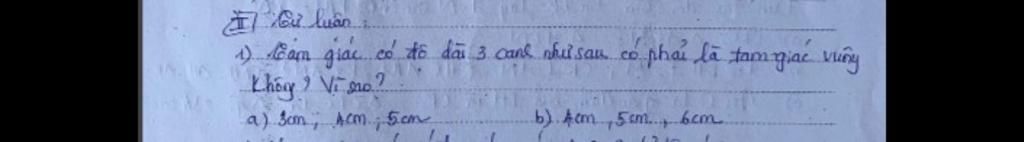 II) Tự luận:
1) Tam giác có độ dài 3 cạnh như sau có phải là tam giác vuông
không? Vì sao?
a) 3cm; 4cm; 5cm b) 4cm, 5cm, 6cm